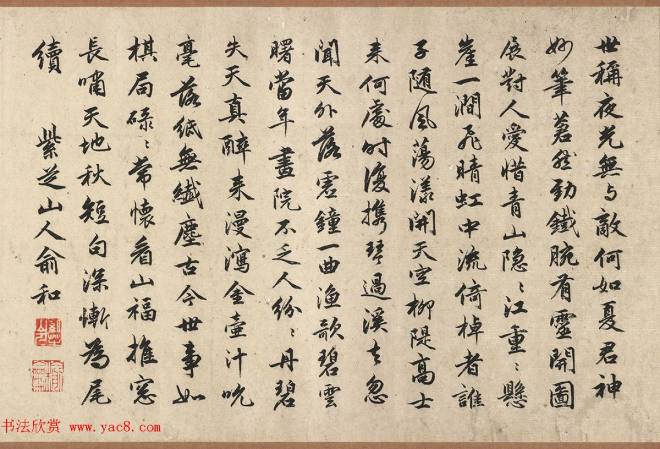 世稱夜光無與敵何如夏君神
妙筆茗然勁鐵腕有靈開圖
展對人愛惜青山隐〻江重〻懸
崖一澗飛晴虹中流倚棹者誰
子随風蕩漾開天空柳隄高士
来何處時復攜琴過溪去忽
聞天外落霜鐘一曲渔歌碧雲
曙當年畫院不乏人纷〻丹碧
失天真醉来漫瀉金壺汁吮
毫落紙無纎塵古今世事如
棋局碌〻常懷看山福推窓
長嘯天地秋短句深慚為尾
續 紫芝山人俞和
书法欣赏 www.yac8.com